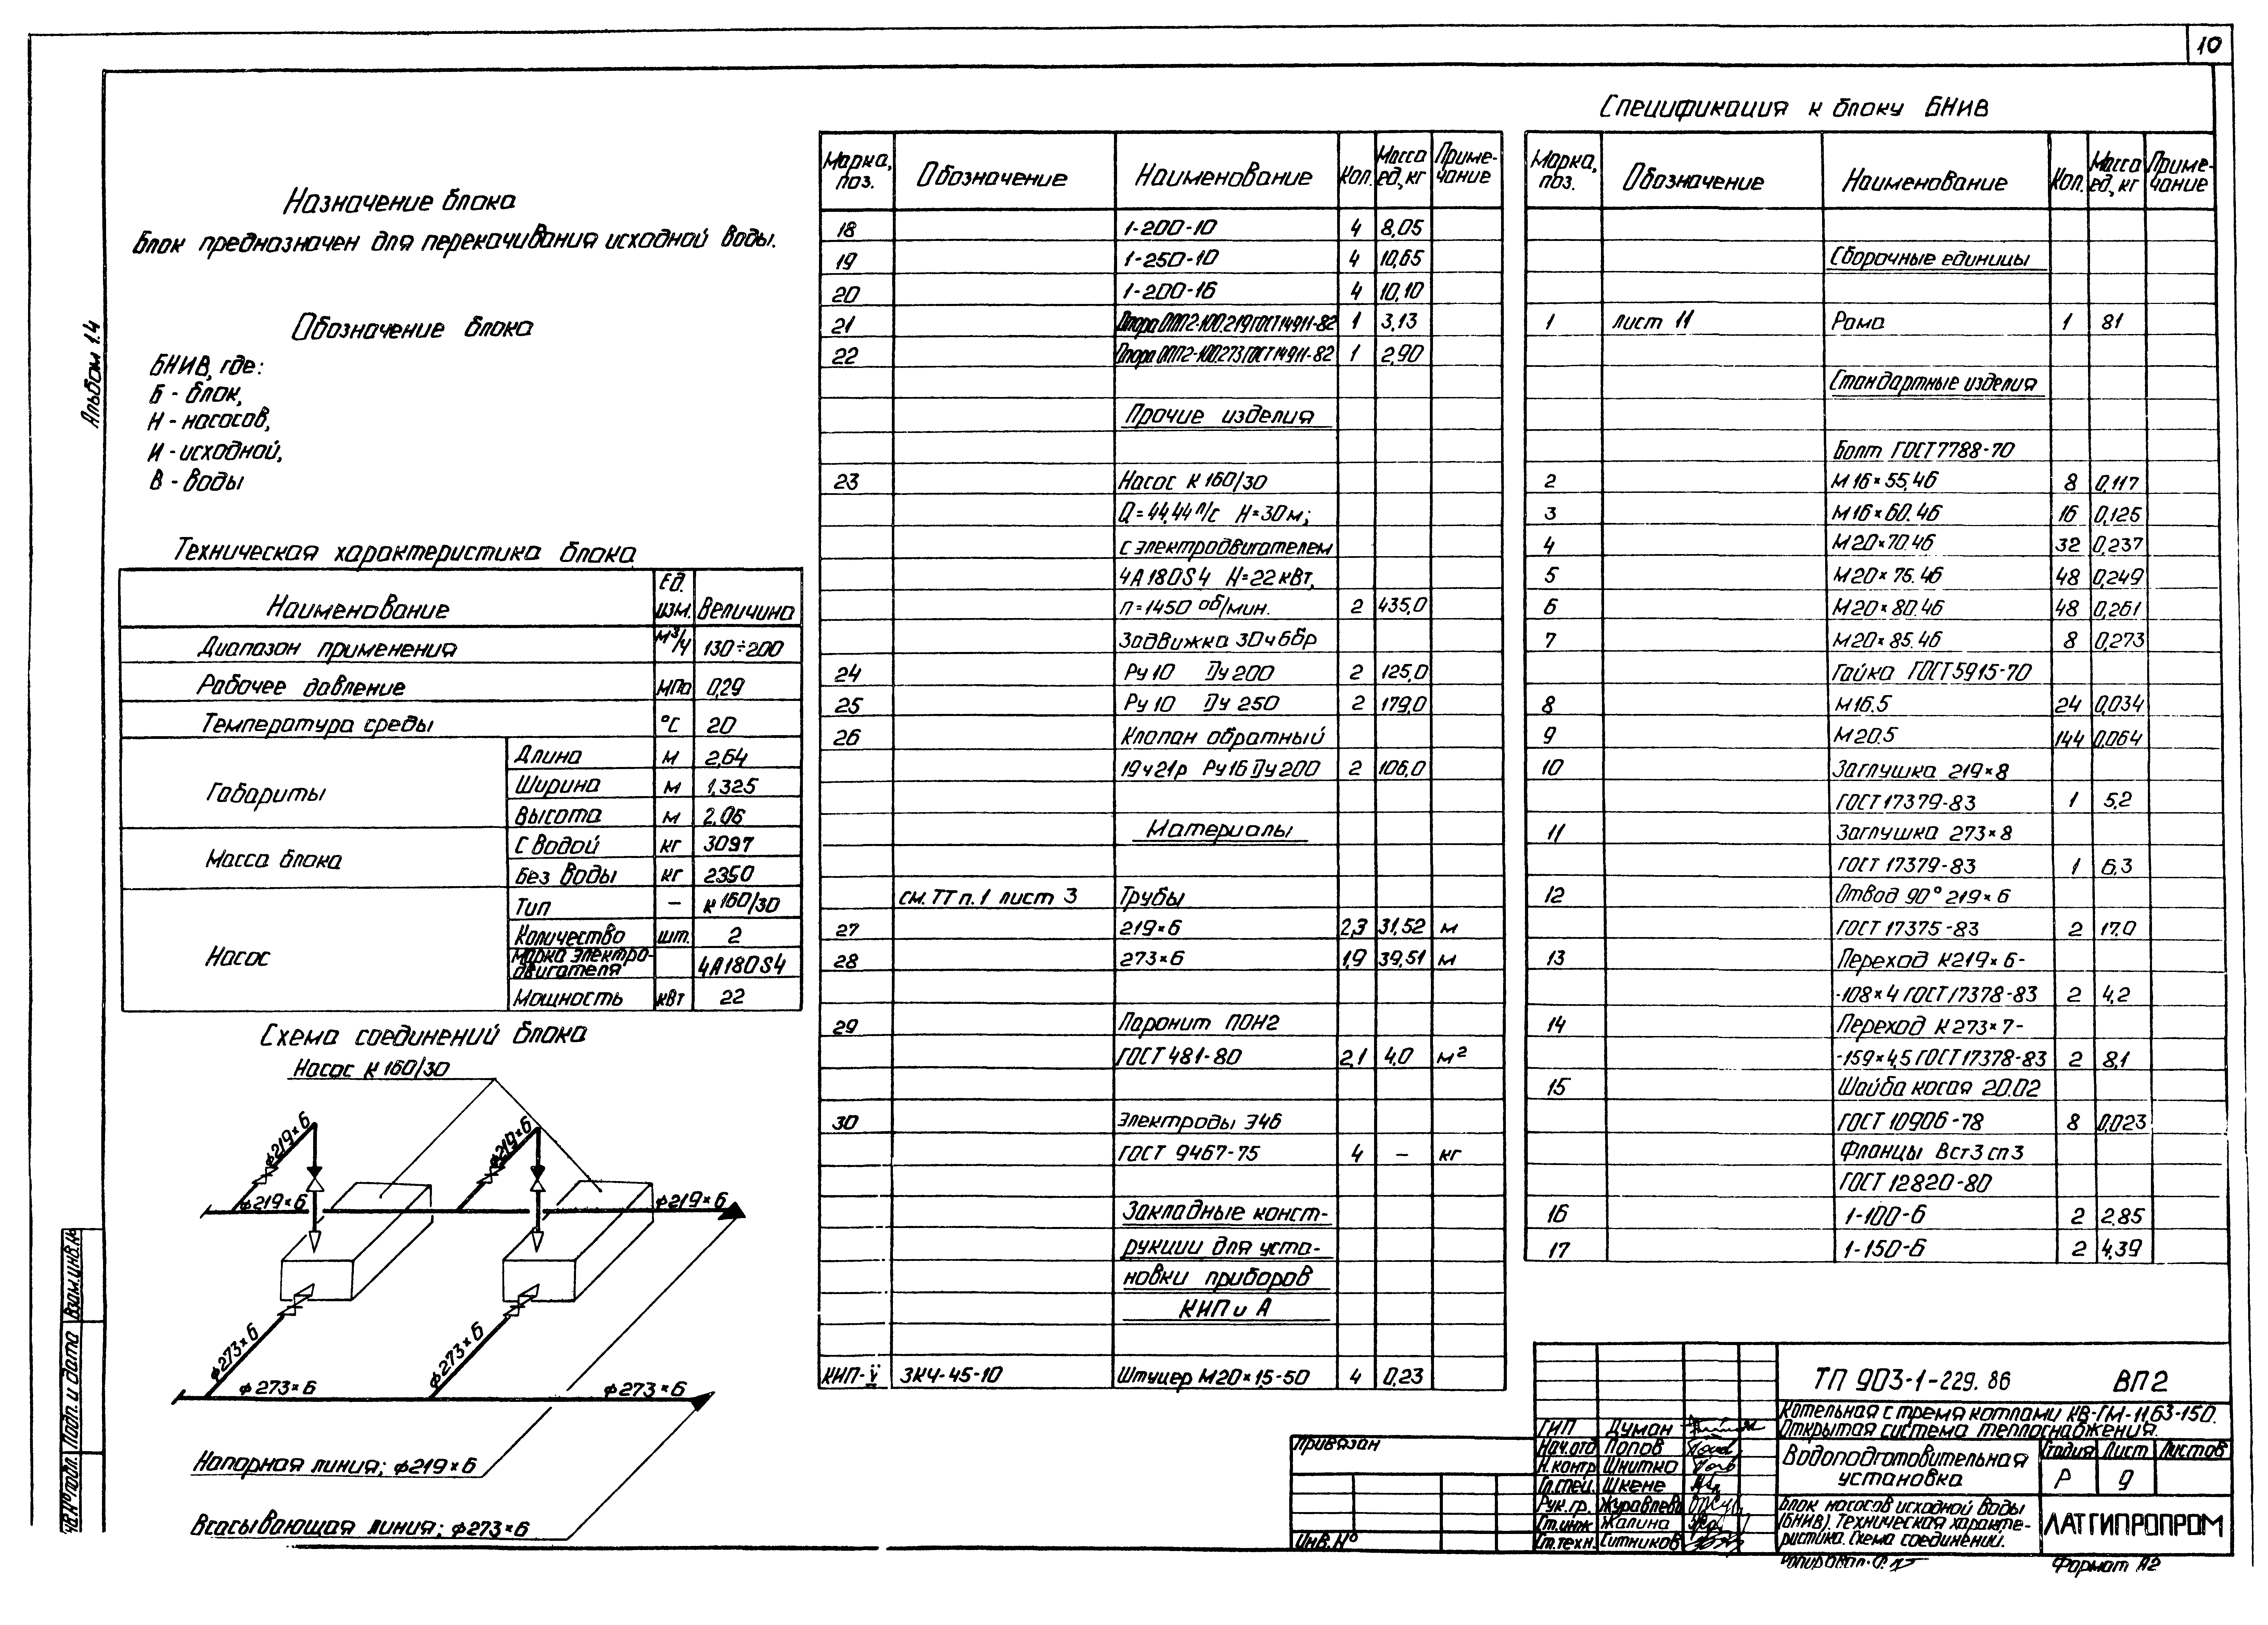 10
Альбом 1.4
Назначение блока
Блок предназначен для перекачивания исходной воды.
Обозначение блока
БНИВ, где:
Б - блок,
Н - насосов,
И - исходной,
В - воды
Техническая характеристика блока
Наименование | Ед. изм. | Величина
Диапазон применения | м³/ч | 130÷200
Рабочее давление | МПа | 0,29
Температура среды | °С | 20
Габариты | Длина | м | 2,64
Ширина | м | 1,325
Высота | м | 2,06
Масса блока | С водой | кг | 3097
Без воды | кг | 2350
Насос | Тип | – | К 160/30
Количество | шт. | 2
Марка электро-
двигателя | 4А180S4
Мощность | кВт | 22
Схема соединений блока
Насос К 160/30
ф219×6
ф219×6
ф219×6
ф219×6
ф273×6
ф273×6
ф273×6
ф273×6
Напорная линия; ф219×6
Всасывающая линия; ф273×6
Марка, поз. | Обозначение | Наименование | Кол. | Масса ед, кг | Приме-чание
18 | 1-200-10 | 4 | 8,05
19 | 1-250-10 | 4 | 10,65
20 | 1-200-16 | 4 | 10,10
21 | Опора ОПП2-100.219 ГОСТ 14911-82 | 1 | 3,13
22 | Опора ОПП2-100.273 ГОСТ 14911-82 | 1 | 2,90
Прочие изделия
23 | Насос К 160/30
Q=44,44 л/с Н=30м;
с электродвигателем
4А180S4 Н=22 кВт,
п=1450 об/мин. | 2 | 435,0
Задвижка 30ч6бр
24 | Ру10 Ду 200 | 2 | 125,0
25 | Ру10 Ду 250 | 2 | 179,0
26 | Клапан обратный
19ч21р Ру16 Ду200 | 2 | 106,0
Материалы
см. ТТ п.1 лист 3 | Трубы
27 | 219×6 | 2,3 | 31,52 | м
28 | 273×6 | 1,9 | 39,51 | м
29 | Паронит ПОН2
ГОСТ 481-80 | 2,1 | 4,0 | м²
30 | Электроды Э46
ГОСТ 9467-75 | 4 | – | кг
Закладные конст-
рукции для уста-
новки приборов
КИП и А
КИП-V | ЗК4-45-10 | Штуцер М20×1,5-50 | 4 | 0,23
Спецификация к блоку БНИВ
Марка, поз. | Обозначение | Наименование | Кол. | Масса ед, кг | Приме-чание
Сборочные единицы
1 | лист 11 | Рама | 1 | 81
Стандартные изделия
Болт ГОСТ 7788-70
2 | М16×55.46 | 8 | 0,117
3 | М16×60.46 | 16 | 0,125
4 | М20×70.46 | 32 | 0,237
5 | М20×75.46 | 48 | 0,249
6 | М20×80.46 | 48 | 0,261
7 | М20×85.46 | 8 | 0,273
Гайка ГОСТ 5915-70
8 | М16.5 | 24 | 0,034
9 | М20.5 | 144 | 0,064
10 | Заглушка 219×8
ГОСТ 17379-83 | 1 | 5,2
11 | Заглушка 273×8
ГОСТ 17379-83 | 1 | 6,3
12 | Отвод 90° 219×6
ГОСТ 17375-83 | 2 | 17,0
13 | Переход К219×6-
-108×4 ГОСТ 17378-83 | 2 | 4,2
14 | Переход К273×7-
-159×4,5 ГОСТ 17378-83 | 2 | 8,1
15 | Шайба косая 20.02
ГОСТ 10906-78 | 8 | 0,023
Фланцы Вст3сп3
ГОСТ 12820-80
16 | 1-100-6 | 2 | 2,85
17 | 1-150-6 | 2 | 4,39
Привязан
Инв. №
ГИП Думан
Нач. отд Попов
Н. контр Шнитко
Гл. спец. Шкене
Рук. гр. Журавлева
Ст. инж Жалина
Ст. техн. Ситников
ТП 903-1-229.86 ВП2
Котельная с тремя котлами КВ-ГМ-11,63-150.
Открытая система теплоснабжения.
Водоподготовительная
установка
Стадия | Лист | Листов
Р | 9
Блок насосов исходной воды
(БНИВ). Техническая характе-
ристика. Схема соединений.
ЛАТГИПРОПРОМ
Копировал.
Формат А2
Взам. инв. №
Подп. и дата
Инв. № подл.